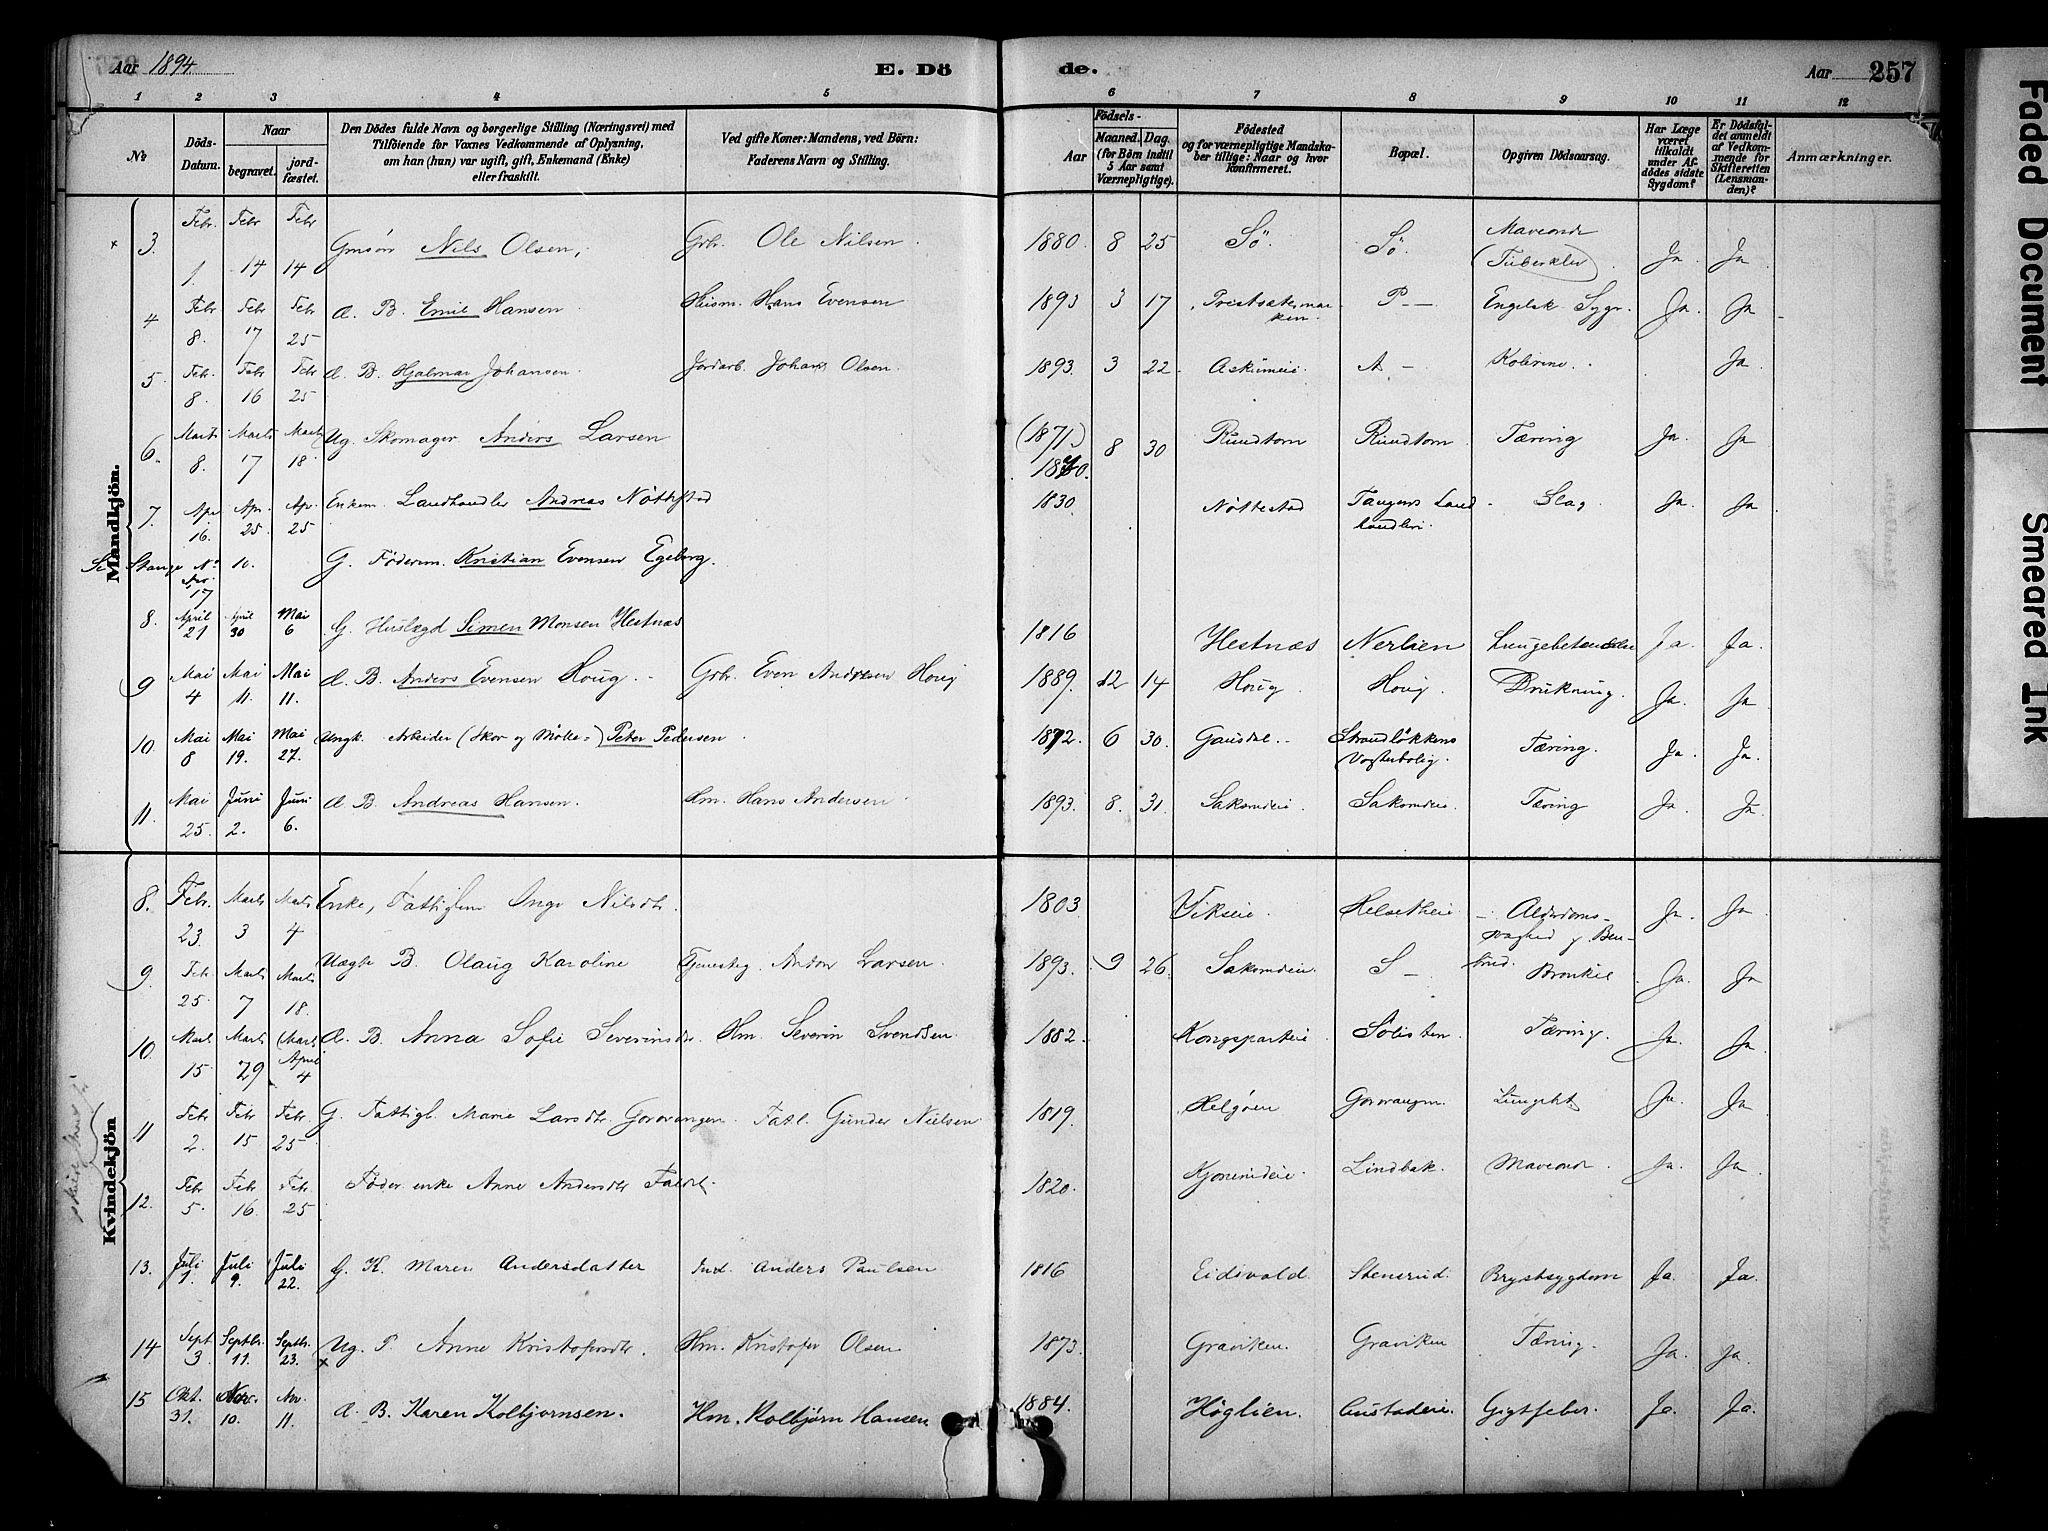 Aar 1894. E. Dö de. Aar 257
1 2 3 4 5 6 7 8 9 10 11 12
No
Döds-
Datum.
Naar
begravet.
jord-
fæstet.
Den Dödes fulde Navn og borgerlige Stilling (Næringsvei) med
Tilföiende for Voxnes Vedkommende af Oplysning,
om han (hun) var ugift, gift, Enkemand (Enke)
eller fraskilt.
Ved gifte Koner: Mandens, ved Börn:
Faderens Navn og Stilling.
Födsels-
Aar
Maaned. Dag.
(for Börn indtil
5 Aar samt
Værnepligtige).
Födested
og for værnepligtige Mandska-
ber tillige: Naar og hvor
konfirmeret.
Bopæl.
Opgiven Dödsaarsag.
Har Læge
været
tilkaldt
under Af-
dödes sidste
Sygdom?
Er Dödsfal-
det anmeldt
af Vedkom-
mende for
Skifteretten
(Lensman-
den)?
Anmærkninger.
Mandkjön.
3 Febr. 1. Febr 14 Febr 14 Gmsøn Nils Olsen, Grb. Ole Nilsen. 1880. 8 25 Sö. Sö. Maveondt (Tuberkler) Ja Ja
4 Febr 8. Febr 17 Febr 25 A. B. Emil Hansen. Husm. Hans Evensen 1893 3 17 P— Engelsk Syge. Ja. Ja
5. Febr. 8. Febr 16 Febr 25 A. B. Hjalmar Johansen. Jordarb. Johans Olsen. 1893. 3 22 Askimeie. A — Kolerine. Ja
6. Marts 8. Marts 17 Marts 18. Ug. Skomager Anders Larsen (1871.) 1870. 8 30 Rundtom Rundtom Tæring Ja. Ja
7. Apr 16. Apr. 25. Apr. 25 Enkem. Landhandler Andreas Nøttestad 1830. Nøttestad Tangens Land handleri. Slag Ja. Ja
Se Stange No 10. Apr. 17 G. Føderm. Kristian Evensen Egeberg.
8. April 21 April 30 Mai 6 G. Huslægd Simen Monsen Hestnæs 1816 Hestnæs Nerlien Lungebetændelse Ja. Ja.
9 Mai 4 Mai 11. Mai 11. A. B. Anders Evensen Houg. Grb. Even Andresen Houg 1889. 12 14 Houg. Houg. Drukning. Ja. Ja
10. Mai 8 Mai 19. Mai 27. Ungk. Arbeider (Skor og Mölle-) Peter Pedersen 1872. 6 30. Gausdal. Strandløkkens Vogterbolig. Tæring. Ja. Ja.
11. Mai 25. Juni 2. Juni 6. A. B. Andreas Hansen. Hm. Hans Andersen 1893. 8. 31. Saksrudeie. Saksrudeie. Tæring Ja. Ja.
Kvindekjön
8. Febr. 23. Marts 3 Marts 4 Enke, Fattiglem Inge Nilsdtr. 1803. Vikseie. Helsetheie Alderdoms- svaghed og Ben- brud. Ja. Ja
9. Febr 25 Marts 7 Marts 18. Uægte B. Olaug Karoline Tjenesteg. Anton Larsen. 1893. 9 26. Saksrudeie. S — Bronkit Ja. Ja
10. Marts 15 Marts 29 (Marts April 4 A. B. Anna Sofie Severinsdtr. Hm. Severin Svendsen. 1882. Kongsparteie Solisten. Tæring. Ja. Ja.
11 Febr 2. Febr 15 Febr 25 G. Fattigl. Marie Larsdtr Gorovangen. Fatl. Gunder Nielsen 1819. Helgøen Gorovangen Lungebt Ja. Ja
12. Febr 5. Febr 16 Febr. 25 Føder. enke Anne Andersdtr 1820. Lindbak. Maveondt. Ja. Ja
13. Juli 1. Juli 9. Juli 22. G. K. Maren Andersdatter Ind. Anders Paulsen 1816 Eidsvold. Stensrud. Brystsygdom Ja. Ja.
14 Sept 3. Septbr. 11. Septbr. 23. Ug. P. Anne Kristofersdtr. Hm. Kristofer Olsen 1873. Graviken. Graviken Tæring. Ja. Ja.
15 Okt. 31. Nov. 10. Nov. 11. A. B. Karen Kolbjørnsen. Hm. Kolbjørn Hansen. 1884. Höglien. Gustaderie. Gigtfeber. Ja. Ja.
Faded Document
Smeared Ink